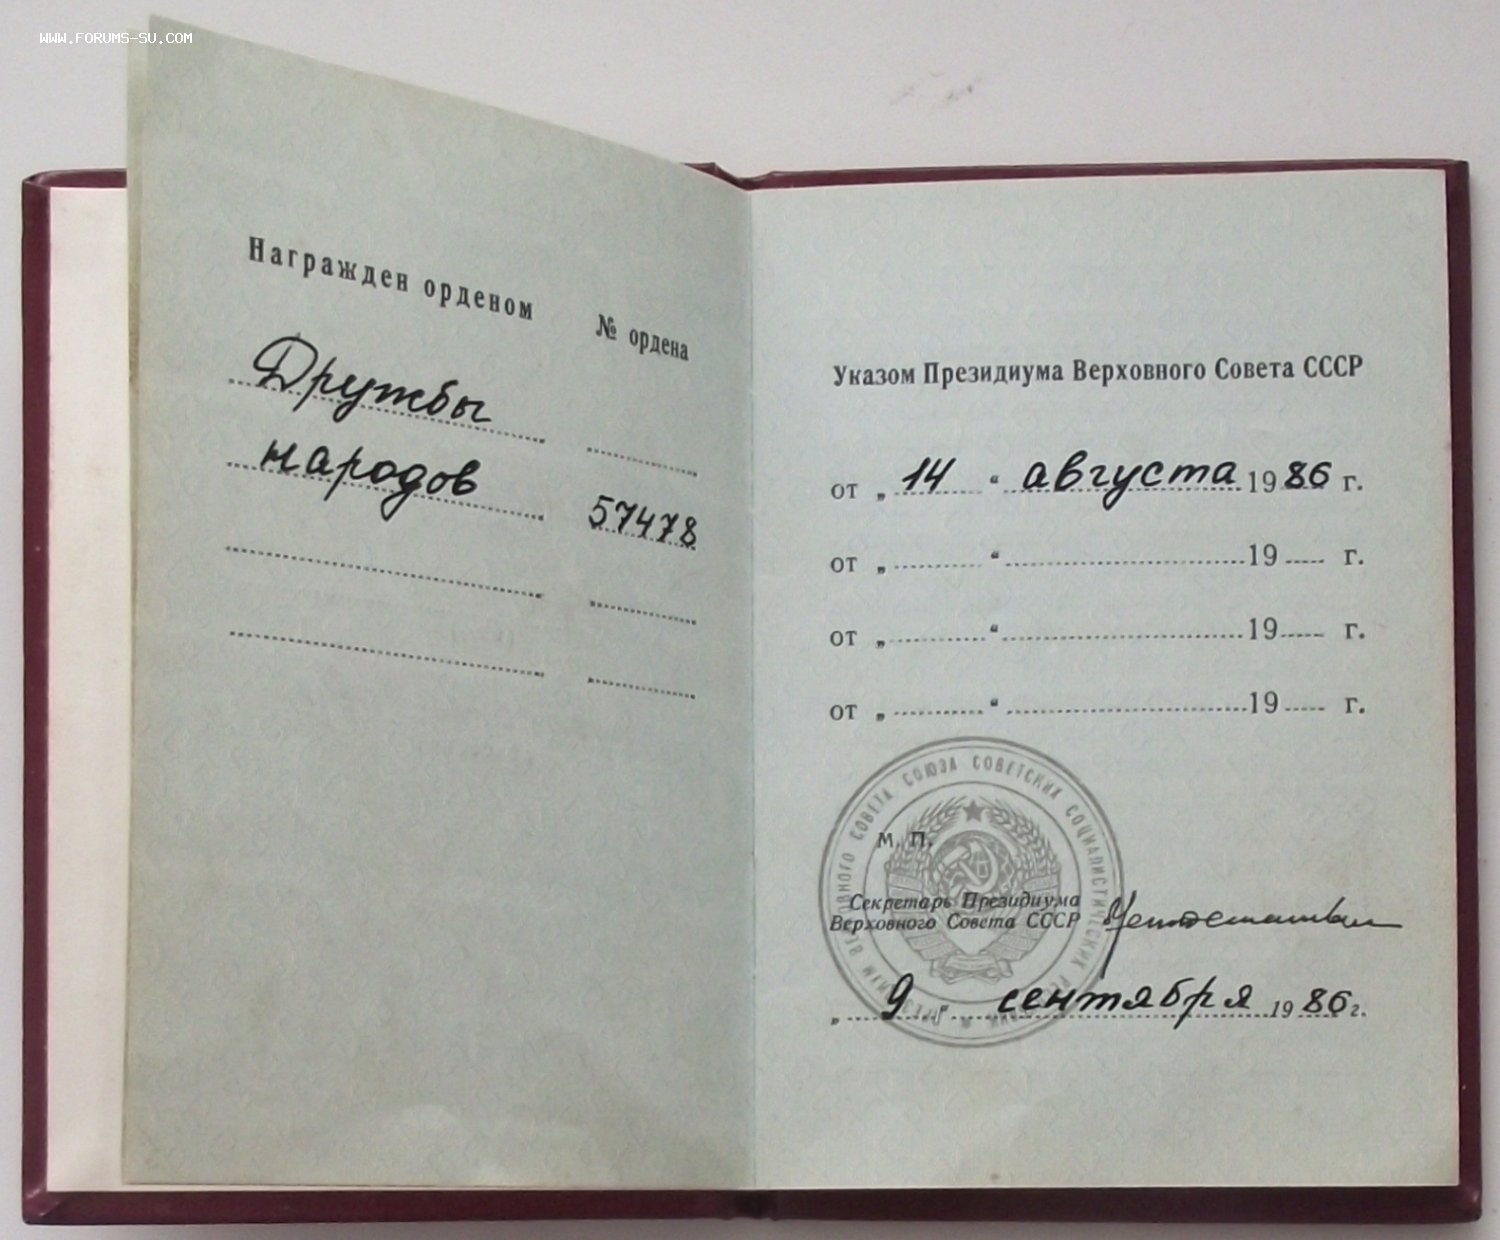 www.forums-su.com
Награжден орденом № ордена
Дружбы
народов 57478
Указом Президиума Верховного Совета СССР
от „ 14 “ августа 1986 г.
от „ “ 19 г.
от „ “ 19 г.
от „ “ 19 г.
СОВЕТА СОЮЗА СОВЕТСКИХ СОЦИАЛИСТИЧЕСКИХ
М. П.
Секретарь Президиума
Верховного Совета СССР
„ 9 “ сентября 1986 г.